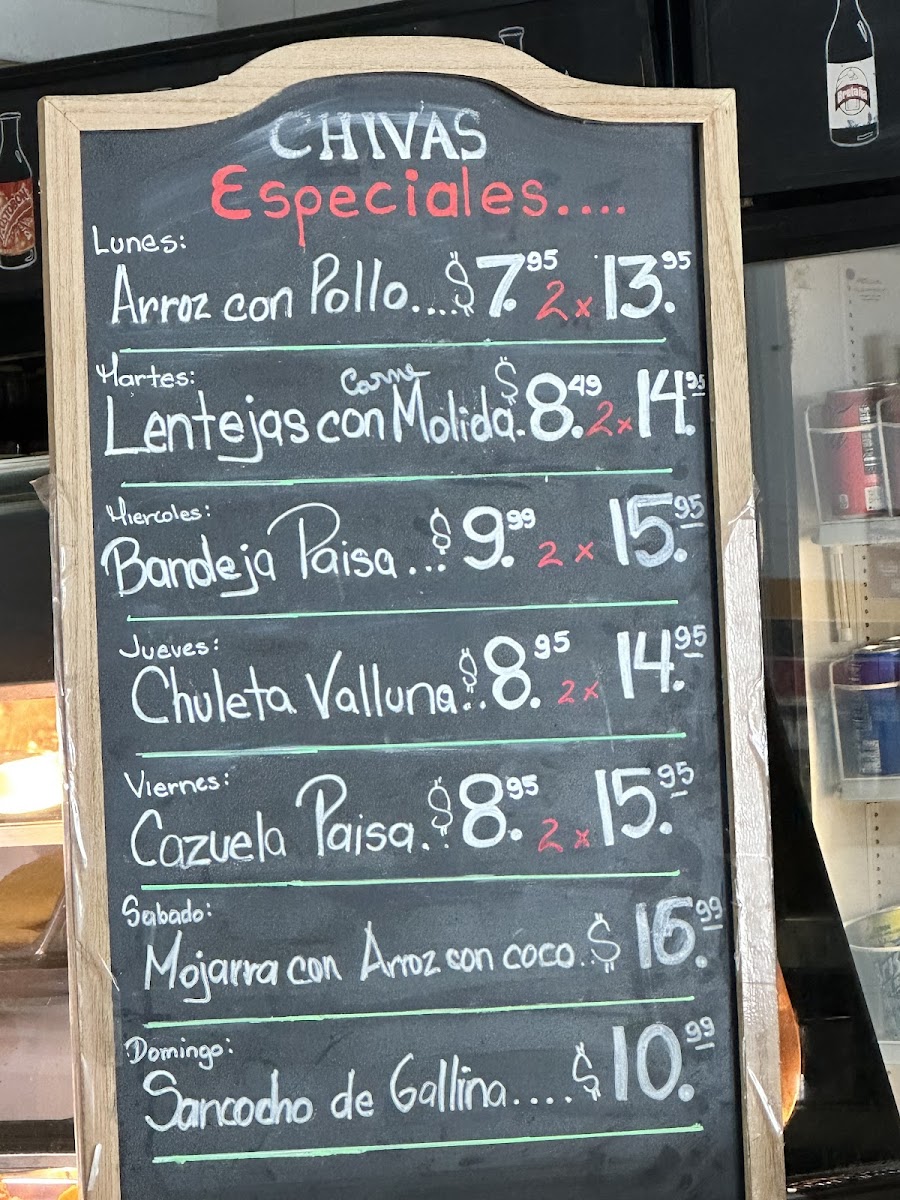 CHIVAS
Especiales....
Lunes:
Arroz con Pollo....$7.95 2x13.95
Martes:
Lentejas con Carne Molida.$8.49 2x14.95
Miercoles:
Bandeja Paisa...$9.99 2x15.95
Jueves:
Chuleta Valluna..$8.95 2x14.95
Viernes:
Cazuela Paisa..$8.95 2x15.95
Sabado:
Mojarra con Arroz con coco.$16.99
Domingo:
Sancocho de Gallina....$10.99